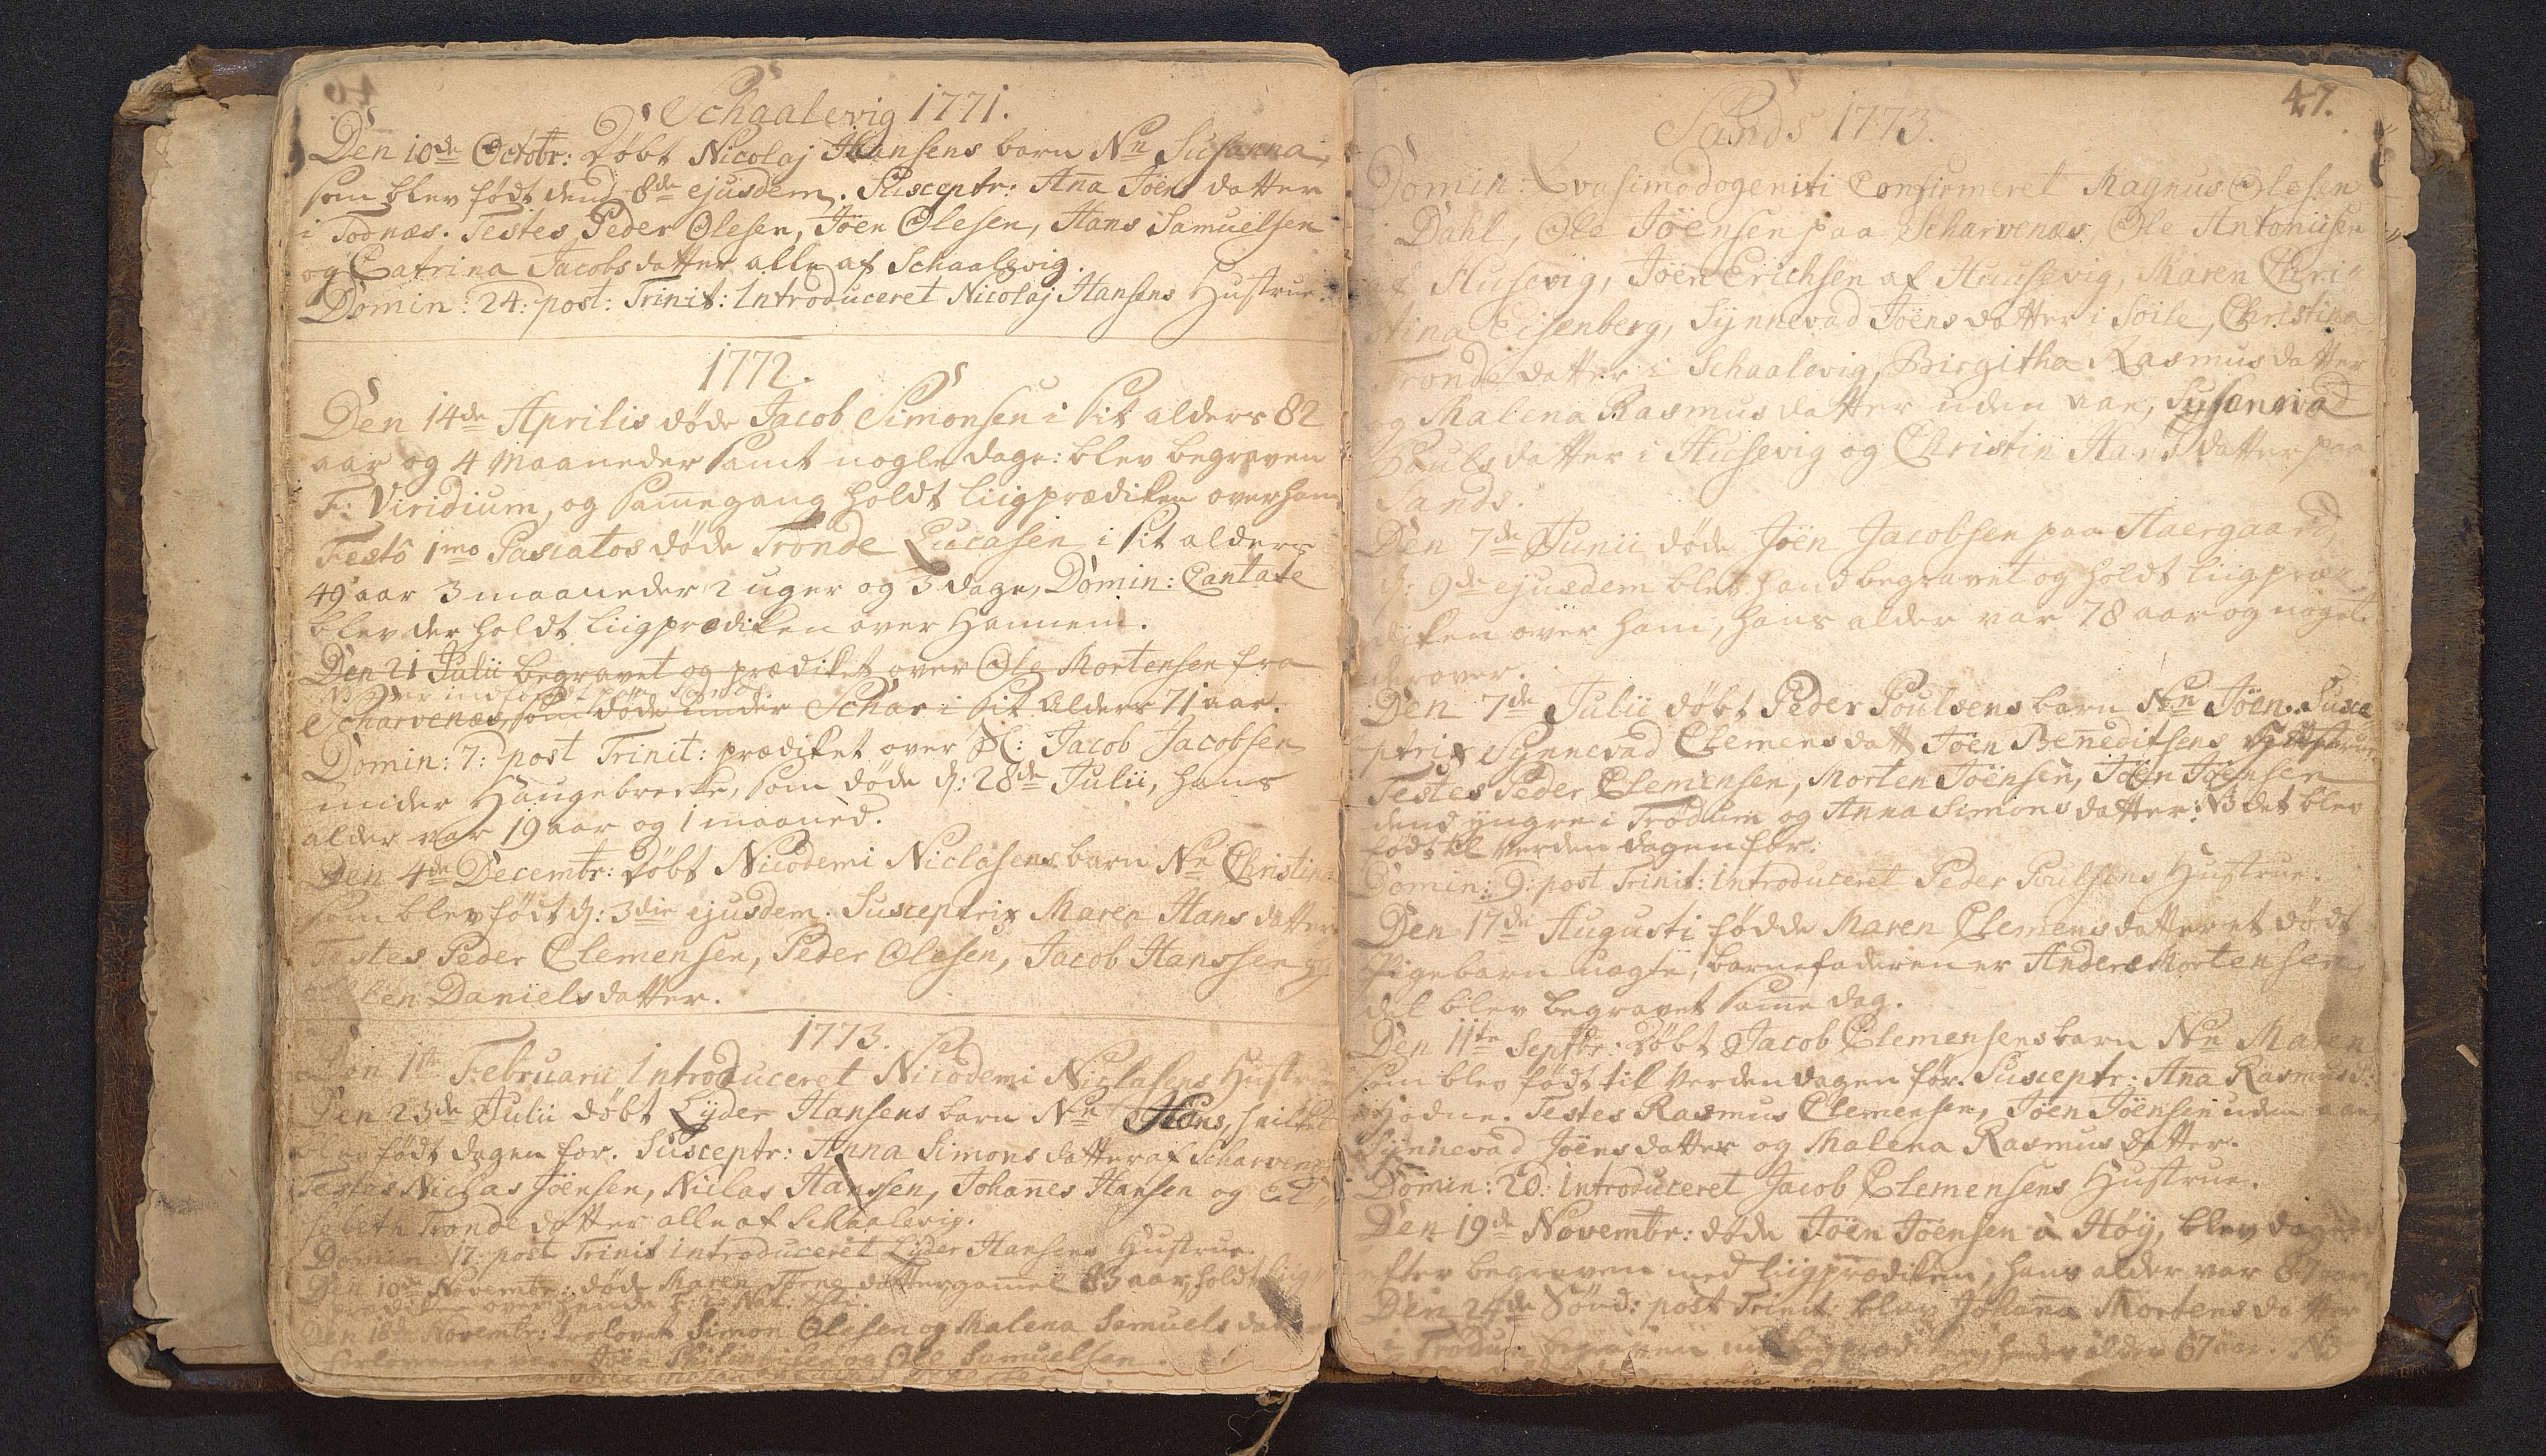 Schaalevig 1771.
Den 10de Octobr: Døbt Nicolaj Hansens barn Nn Susanna,
som blev født dend 8de ejusdem. Susceptr: Aña Jöens datter
i Todnæs. Testes Peder Olesen, Jöen Olesen, Hans Samuelsen
og Catrina Jacobsdatter alle af Schaalevig.
Domin: 24: post: Trinit: Introduceret Nicolaj Hansens Hustrue.
1772.
Den 14de Aprilis døde Jacob Simonsen i sit alders 82
aar og 4 Maaneder samt nogle dage: blev begraven
F: Viridium, og sam̃egang holdt liigprædiken over ham
Festô 1mo Pascatos døde Tronde Lucasen i sit alders
49 aar 3 maaneder 2 uger og 3 dage, Domin: Cantate
blev der holdt liigprædiken over Hannem.
Den 21 Julii begravet og prædiket over Ole Mortensen fra
NB er indført paa Sand
Scharvenæs, som døde under Schar i sit Alders 71 aar.
Domin: 7: post Trinit: prædiket over Sl: Jacob Jacobsen
under Haugebrecke, som døde d: 28de Julii, hans
alder var 19 aar og 1 maaned.
Den 4de Decembr: Døbt Nicodemi Niclasens barn Nn Christina
som blev født d: 3die ejusdem. Susceptrix Maren Hans datter
Testes Peder Clemensen, Peder Olesen, Jacob Hanssen og
Ellen Daniels datter.
1773.
Den 1ste Februarii Introduceret Nicodemi Niclasens Hustrue
Den 23de Julii døbt Lyder Hansens barn Nn Hans, hvilket
blev født dagen for. Susceptr: Anna Simons datter af Scharvenæs
Testes Niclas Jöensen, Niclas Hanssen, Johañes Hansen og El-
sebeth Tronde datter alle af Schaalevig.
Domin: 17: post Trinit introduceret Lyder Hansens Hustrue.
Den 10de Novembr: døde Maren datter gam̃el 83 aar, holdt liig-
prædiken over hende
Den 18de Novembr: trolovet Simon Olesen og Malena Samuels datter
forloverne vare Jöen og Ole Samuelsen.
47.
Sands 1773.
Domin: Qvasimodogeniti Confirmeret Magnus Olesen
i Dahl, Ole Jöensen paa Scharvenæs, Ole Antoniisen
af Husevig, Jöen Erichsen af Huusevig, Maren Chri-
stina Eisenberg, Synnevad Jöens datter i Soile, Christina
Tronde datter i Schaalevig, Birgitha Rasmus datter
og Malena Rasmus datter uden aae, Susannad
Pouls datter i Husevig og Christin Hans datter paa
Sands.
Den 7de Junii døde Jöen Jacobsen paa Haergaard,
d: 9de ejusdem blev hand begravet og holdt liigpræ-
diken over ham, hans alder var 78 aar og noget
derover.
Den 7de Julii døbt Peder Poulsens barn Nn Jöen. Susce
ptrix Synnevad Clemens datt Jöen Beneditsens Hustrue
Testes Peder Clemensen, Morten Jöensen, Jöen Jöensen
dend yngre i Trodum og Anna Simons datter: NB det blev
født til verden dagen for.
Domin: 9: post Trinit: Introduceret Peder Poulsens Hustrue.
Den 17de Augusti fødde Maren Clemens datter et dødt
Pigebarn uægte, barnefaderen er Anders Mortensen,
det blev begravet sam̃e dag.
Den 11te Septbr: Døbt Jacob Clemensens barn Nn Maren
som blev født til verden dagen før. Susceptr: Aña Rasmusd:
Testes Rasmus Clemensen, Jöen Jöensen uden aae,
Synnevad Jöens datter og Malena Rasmus datter.
Domin: 20: Introduceret Jacob Clemensens Hustrue.
Den 19de Novembr: døde Jöen Jöensen à Høÿ, blev dagen
efter begraven med liigprædiken, hans alder var 87 aar
Den 24de Sönd: post Trinit: blev Johaña Mortens datter
i Trodum begraven med liigprædiken, hendes alder 67 aar. NB